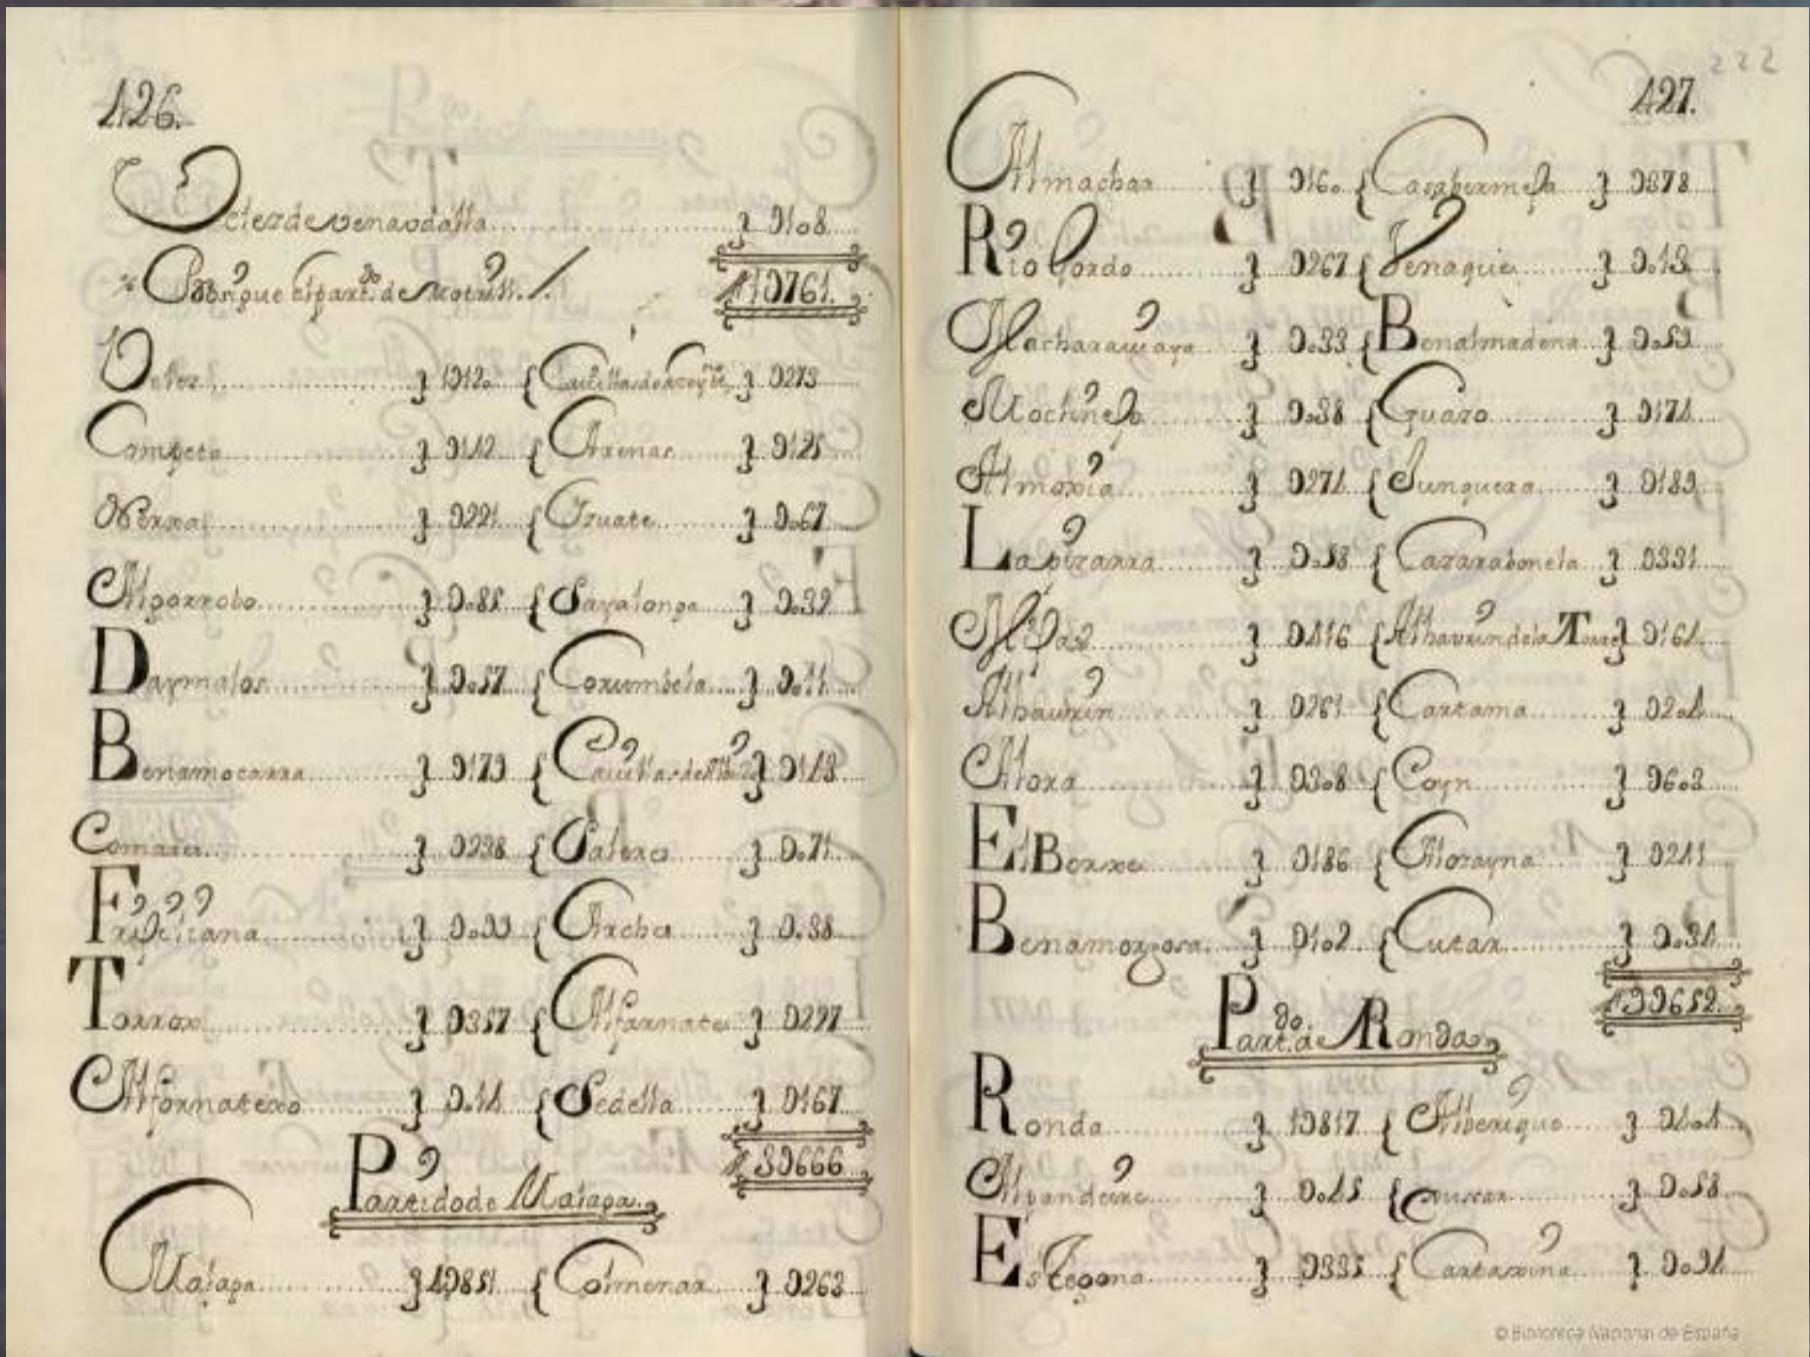 426.
Velez de venaodalla } D1o8
Prosigue el part.do de Motril. /. 1D761.
Velez } 1D12o { Canillas de azeytu.no } D273
Competa } D142 { Arenas } D125
Nerxa } D221 { Yznate } Do67
Algorrobo } Do85 { Sayalonga } Do39
Daymalos } Do57 { Corumbela } Do11
Benamocarra } D179 { Canillas de Albaida } D148
Comares } D298 { Salares } Do71
Frixiliana } Do99 { Archez } Do38
Torrox } D357 { Alfarnate } D227
Alfarnatexo } Do14 { Sedella } D167
3D666
Partido de Malaga
Malaga } 4D851 { Colmenar } D263
222
427.
Almachar } D16o { Casabermeja } D378
Rio Gordo } D267 { Benaque } Do13
Macharawiaya } Do33 { Benalmadena } Do59
Mochineja } Do38 { Guaro } D174
Almoxia } D274 { Junquera } D189
La pizarra } Do58 { Cazarabonela } D331
Mijas } D416 { Alhaurin de la Torre } D164
Alhaurin } D261 { Cartama } D2o4
Alora } D3o8 { Coyn } D6o3
El Borxe } D186 { Alozayna } D241
Benamorgosa } D1o2 { Cutar } Do34
9D652
Part.do de Ronda
Ronda } 1D817 { Atberique } D1o4
Alpandeire } Do45 { Juscar } Do58
Estegona } D335 { Cartaxina } Do34
© Biblioteca Nacional de España